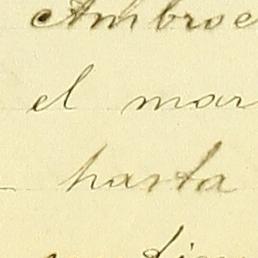 Ambroc
el mar
hasta